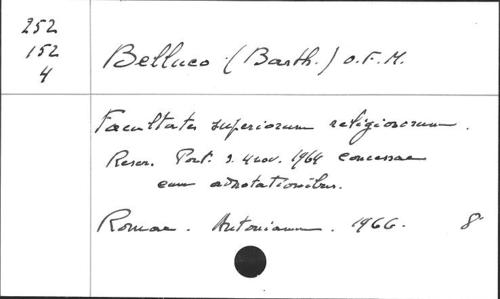 252
152
4
Belluco (Barth.) O.F.M.
Facultates superiorum religiosorum.
Rescr. Pont. 2. 4 nov. 1964 concessae
cum adnotationibus.
Romae. Antonianum. 1966. 8